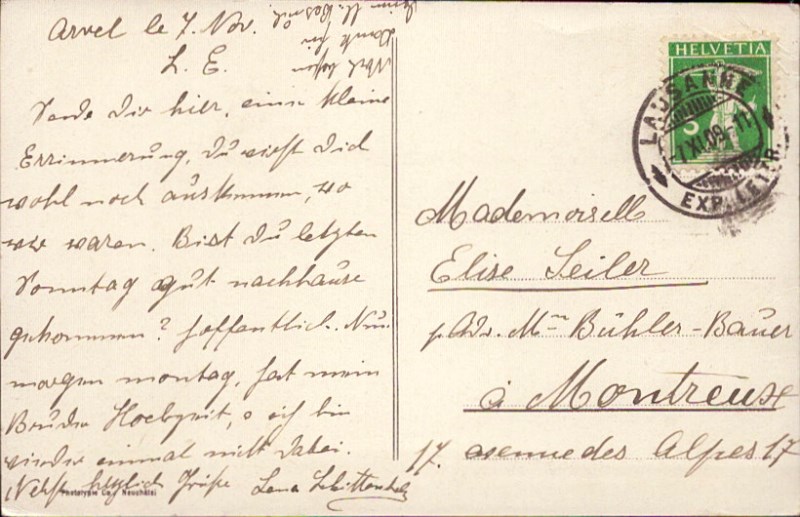 Arvel le 7. Nov.
L. E.
Sende Dir hier, eine kleine
Errinnerung, Du wirst Dich
wohl noch auskennen, wo
wir waren. Bist Du letzten
Sonntag gut nachhause
gekommen? hoffentlich. Nun
morgen montag, hat mein
Bruder Hochzeit, o ich bin
wieder einmal nicht dabei.
Nebst herzlich Grüße Lena
Phototypie Co., Neuchâtel
HELVETIA
5
LAUSANNE
7.XI.09.-11
EXP. LETTR.
Mademoiselle
Elise Seiler
p. Adr. Mme Bühler-Bauer
à Montreux
17. avenue des Alpes 17